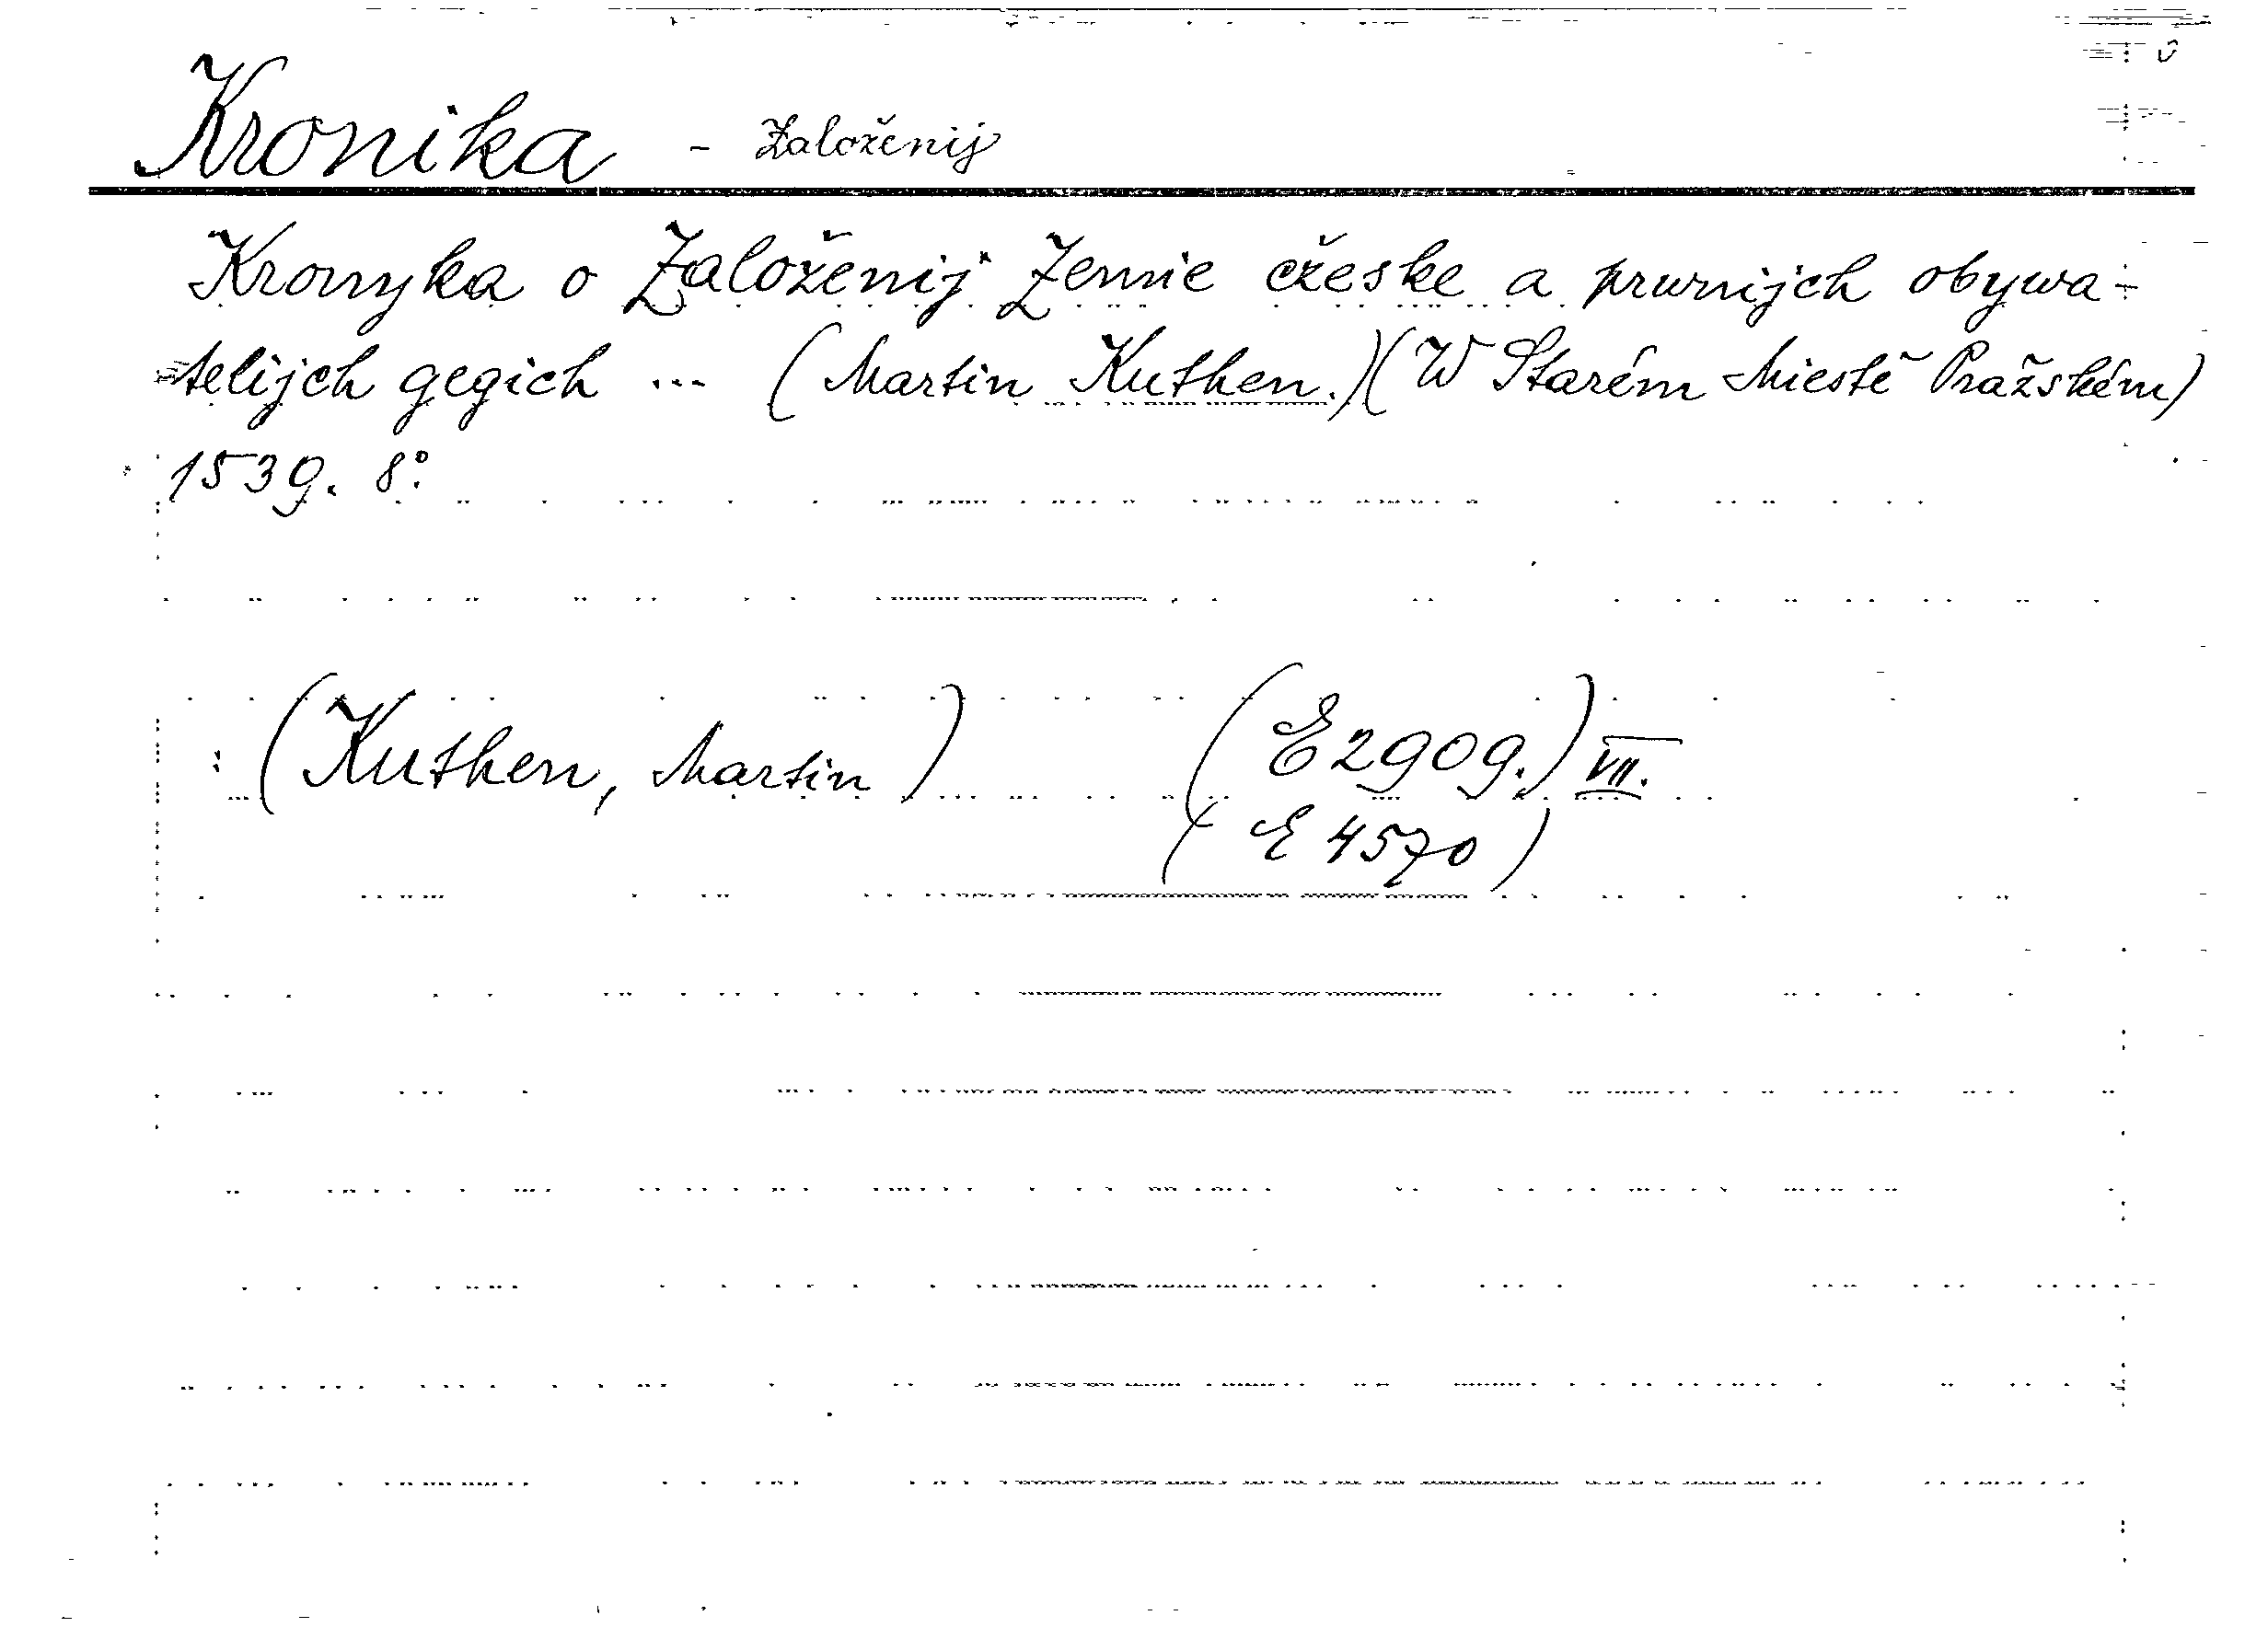 Kronika - Založenij
Kronyka o Založenij Zemie cžeske a prwnijch obywa-
telijch gegich ... (Martin Kuthen.) (W Starém Miestě Pražském)
1539. 8°.
(Kuthen, Martin) (E2909.) VII.
(E 4570)